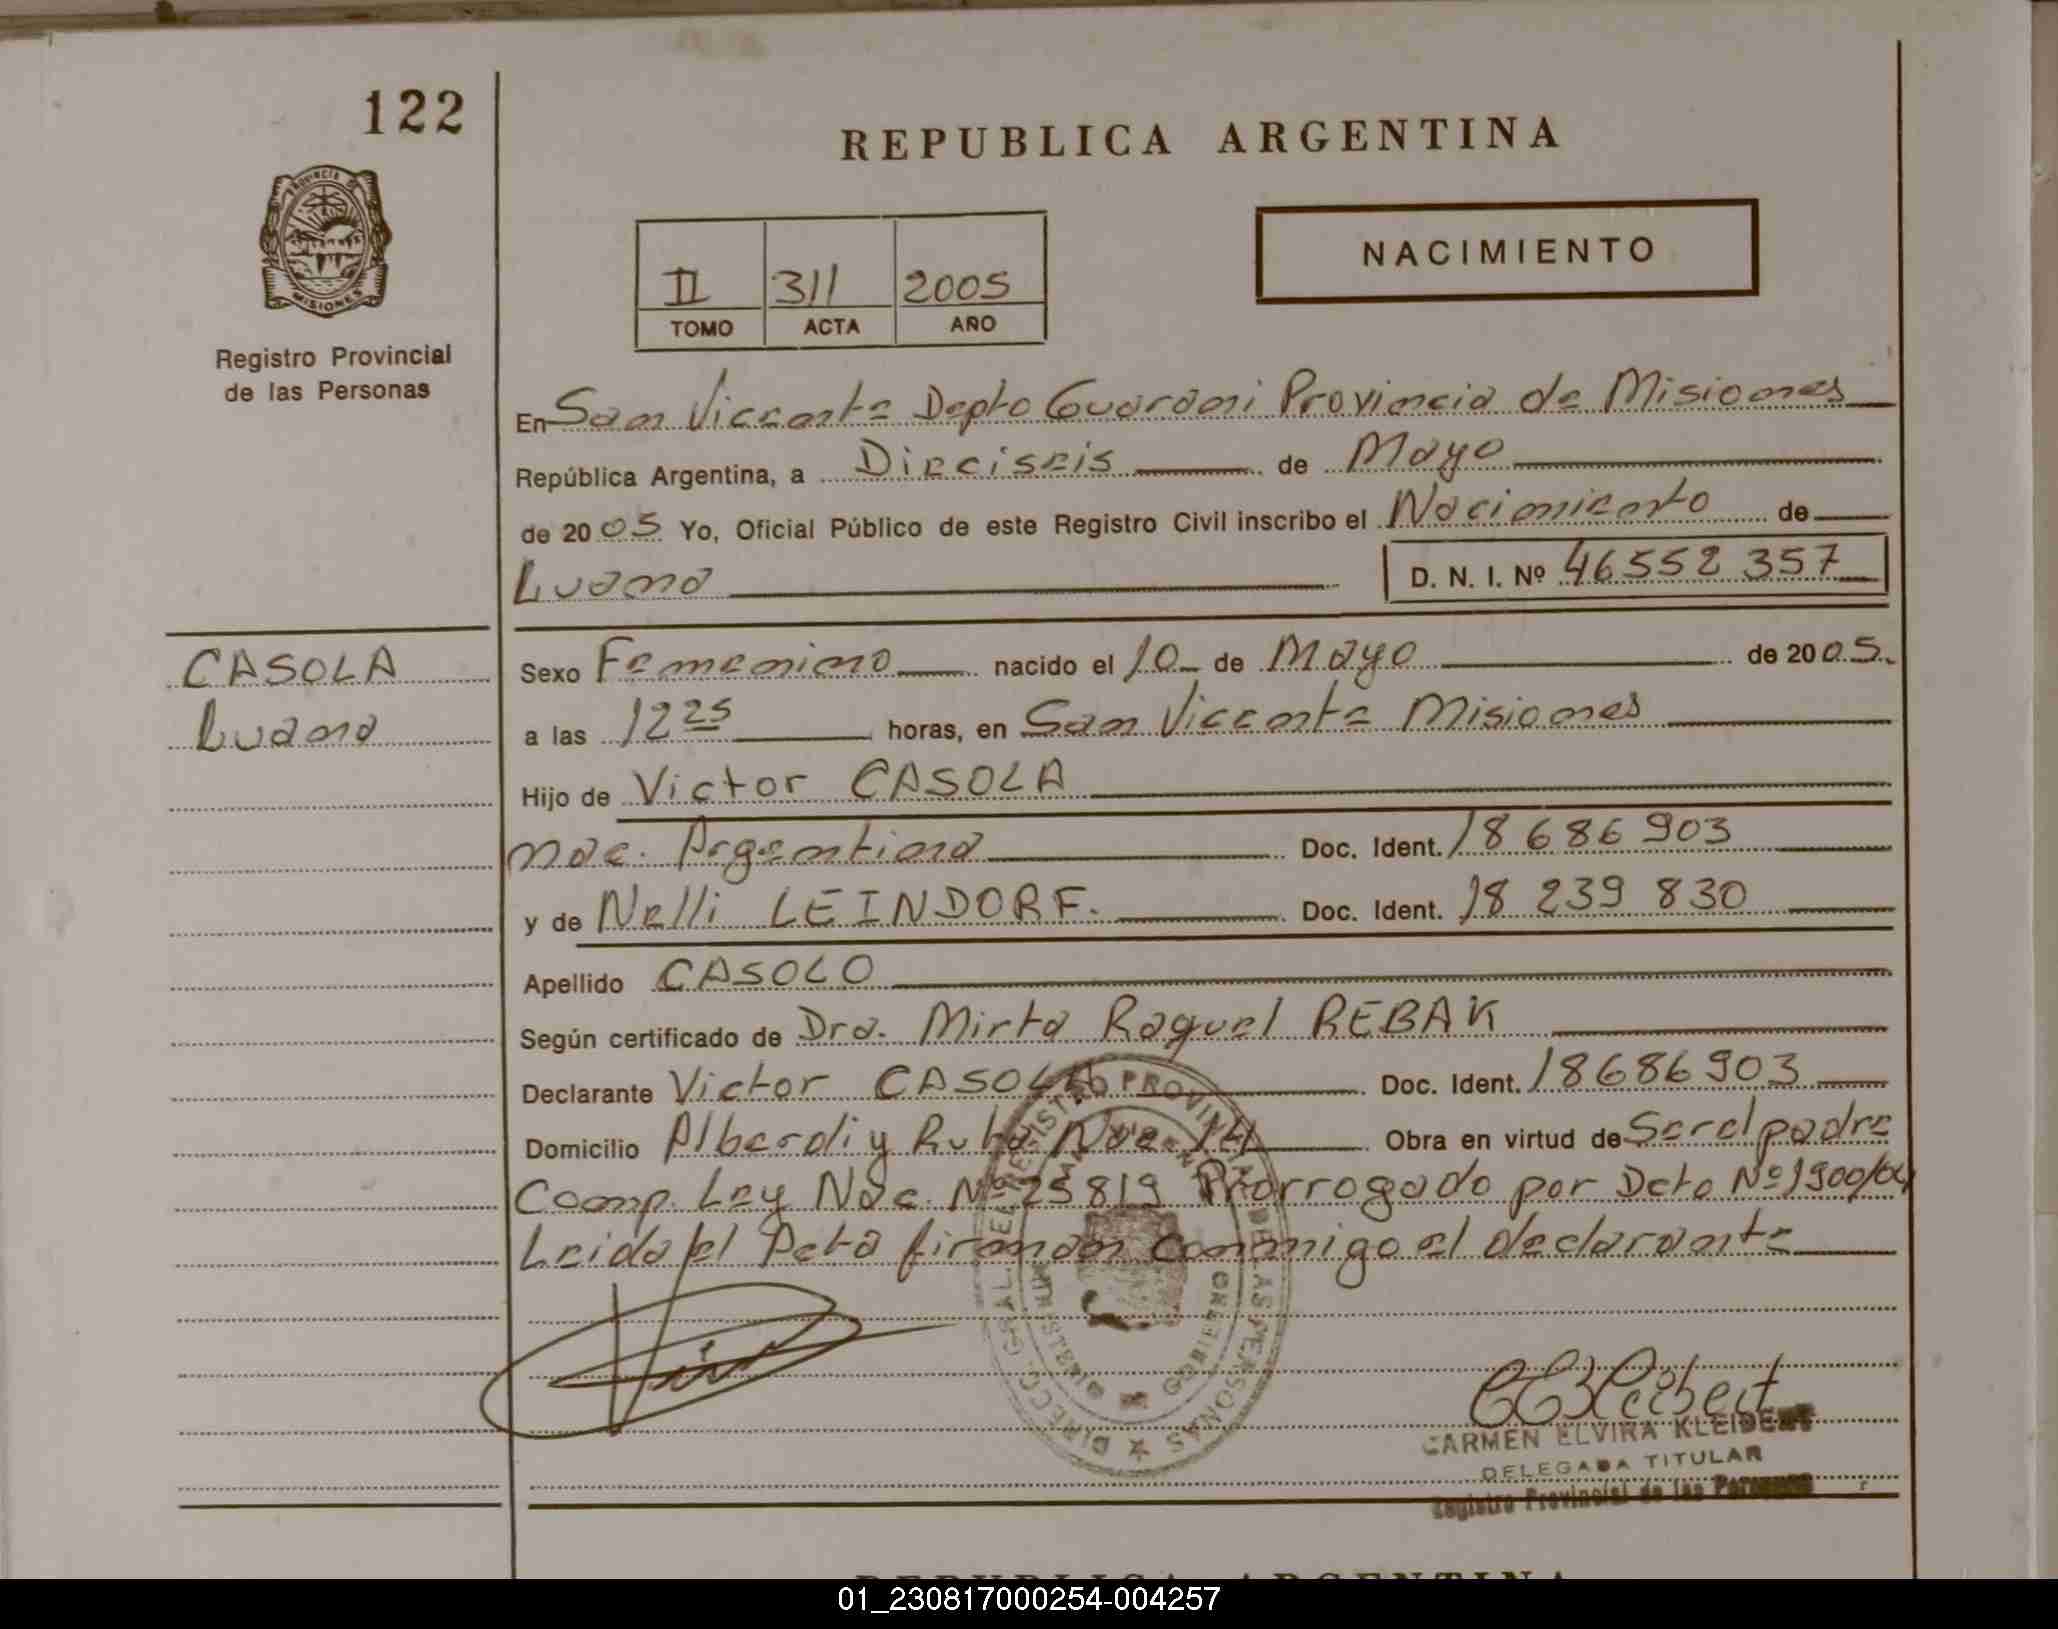 122
REPUBLICA ARGENTINA
PROVINCIA DE
MISIONES
Registro Provincial
de las Personas
II 311 2005
TOMO ACTA AÑO
NACIMIENTO
En San Vicente Depto Guarani Provincia de Misiones
República Argentina, a Dieciseis de Mayo
de 2005 Yo, Oficial Público de este Registro Civil inscribo el Nacimiento de
Luana D. N. I. Nº 46552 357
CASOLA
Luana
Sexo Femenino nacido el 10 de Mayo de 2005.
a las 12 25 horas, en San Vicente Misiones
Hijo de Victor CASOLA
nac. Argentina Doc. Ident. 18 686 903
y de Nelli LEINDORF. Doc. Ident. 18 239 830
Apellido CASOLO
Según certificado de Dra. Mirta Raquel REBAK
Declarante Victor CASOLA Doc. Ident. 18686903
Domicilio Alberdi y Ruta Nac 14 Obra en virtud de Ser el padre
Comp. Ley Nac. Nº 25819 Prorrogado por Dcto Nº 1900/04
Leida el Acta firman conmigo el declarante
DIRECC. GRAL. DEL REGISTRO PROVINCIAL DE LAS PERSONAS
MINISTERIO GOBIERNO
CARMEN ELVIRA KLEIBERT
DELEGADA TITULAR
Registro Provincial de las Personas
REPUBLICA ARGENTINA
01_230817000254-004257